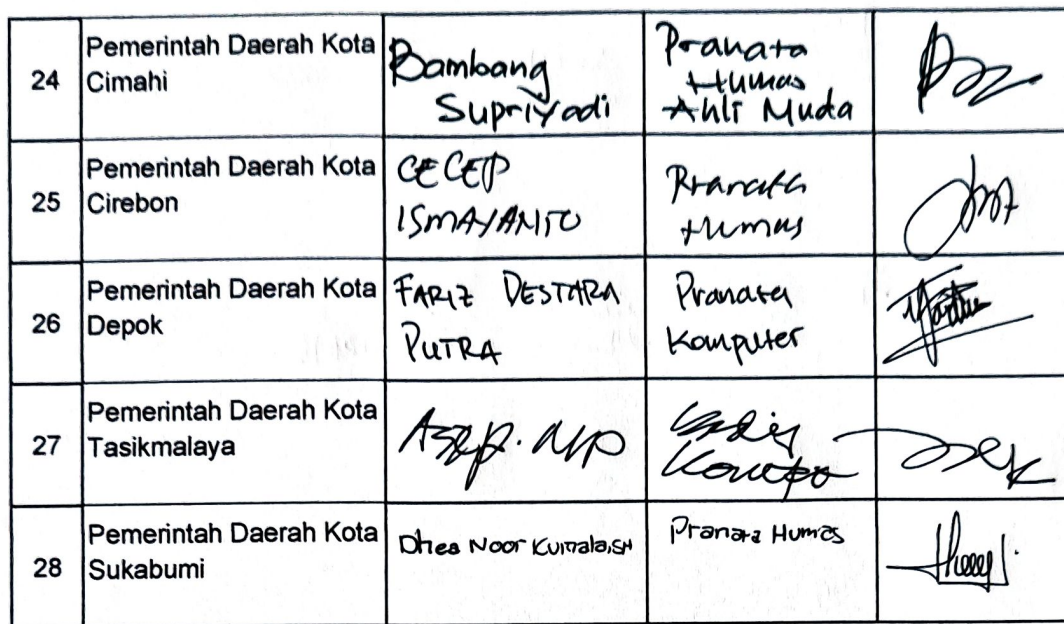 24
Pemerintah Daerah Kota
Cimahi
Bambang
Supriyadi
Pranata
Humas
Ahli Muda
25
Pemerintah Daerah Kota
Cirebon
CECEP
ISMAYANTO
Pranata
Humas
26
Pemerintah Daerah Kota
Depok
FARIZ DESTARA
PUTRA
Pranata
Komputer
27
Pemerintah Daerah Kota
Tasikmalaya
Asep.
28
Pemerintah Daerah Kota
Sukabumi
Dhea Noor Kumala,SH
Pranata Humas